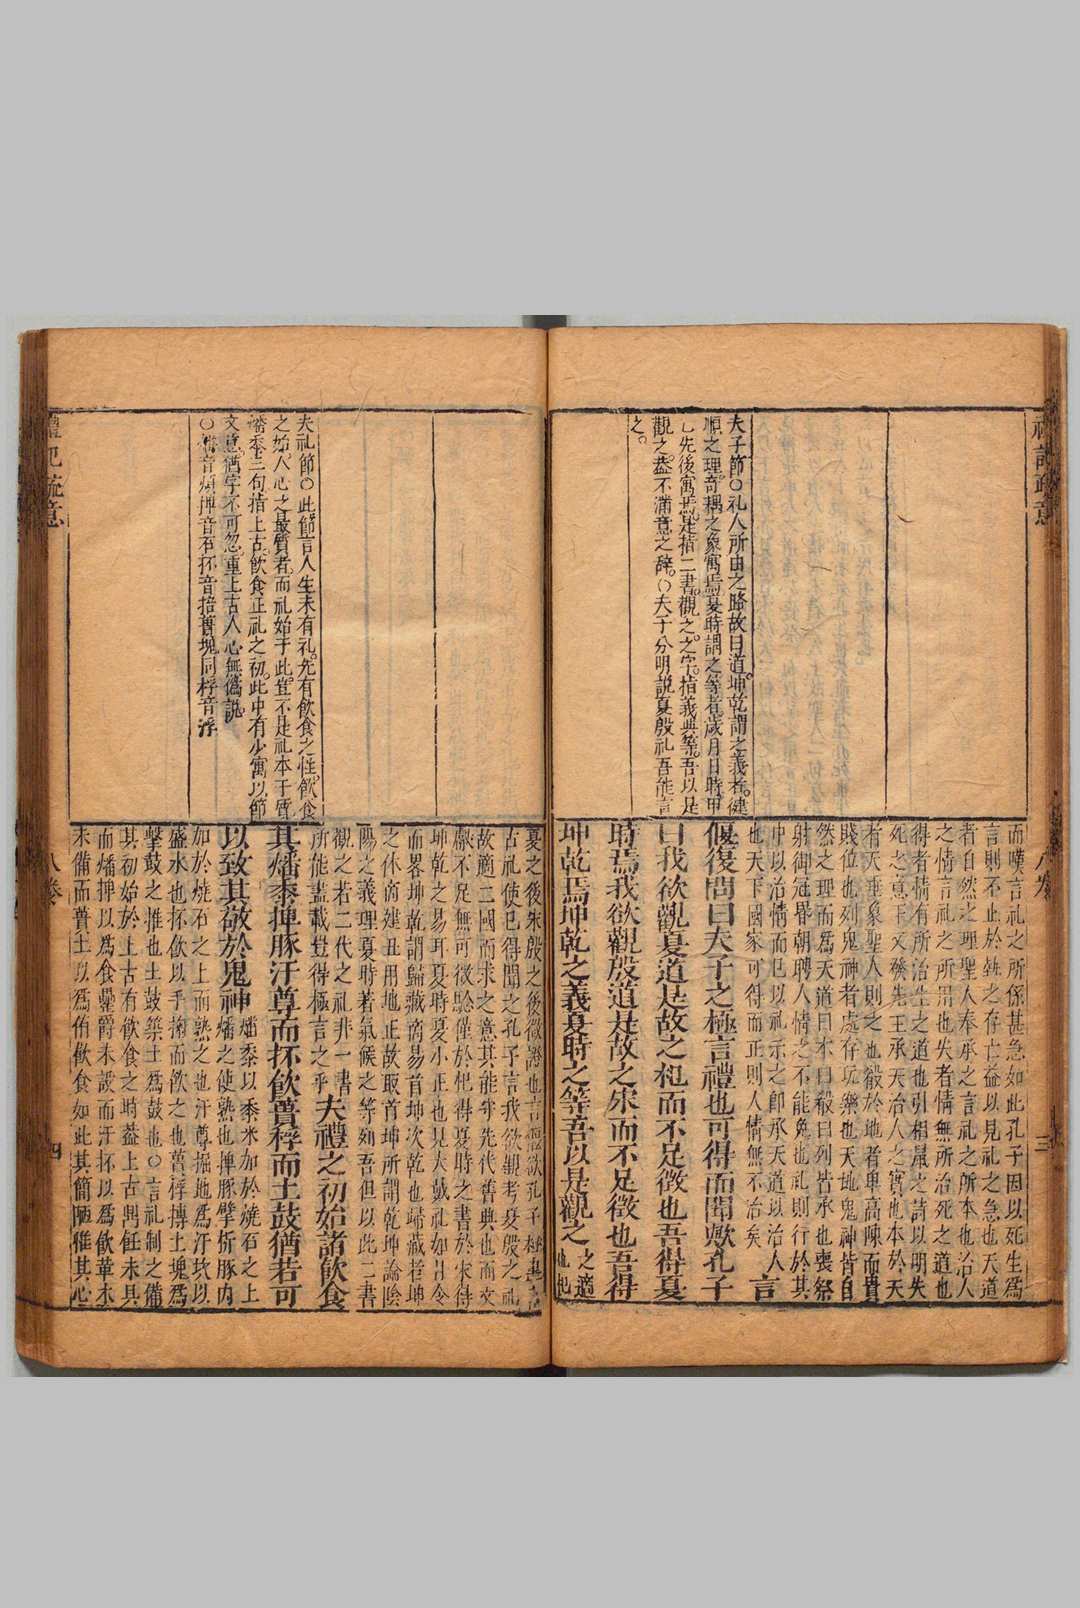 禮記疏意
夫子節○礼人所由之路故曰道坤乾謂之義者健
順之理奇耦之象寓焉夏時謂之等者歲月日時甲
乙先後寓焉是指二書觀之之字指義與等吾以是
觀之葢不滿意之辞○夫子分明説夏殷礼吾能言
之
八卷
三
而嘆言礼之所係甚急如此孔子因以死生爲
言則不止於 之存亡益以見礼之急也天道
者自然之理聖人奉承之言礼之所本也治人
之情言礼之所用也失者情無所治死之道也
得者情有所治生之道也引相鼠之詩以明失
死之意下文 先王承天治人之實也本於天
者天垂象聖人則之也殽於地者卑高陳而貴
賤位也列鬼神者處存玩樂也天地鬼神皆自
然之理而爲天道曰本曰殽曰列皆承也喪祭
射御冠昬朝聘人情之不能免也礼則行於其
中以治情而已以礼示之即承天道以治人
也天下國家可得而正則人情無不治矣 言
偃復問曰夫子之極言禮也可得而聞歟孔子
曰我欲觀夏道是故之杞而不足徵也吾得夏
時焉我欲觀殷道是故之宋而不足徵也吾得
坤乾焉坤乾之義夏時之等吾以是觀之 之適也杞
夫礼節○此節言人生未有礼先有飲食之性飲食
之始人心之最質者而礼始于此豈不是礼本于質
燔黍三句指上古飲食正礼之初此中有少寓以節
文意猶字不可忽重上古人心無僞説
○燔音煩捭音百抔音掊蕢塊同桴音浮
夏之後宋殷之後徵證也言偃欲孔子
古礼使已得聞之孔子言我欲觀考夏殷之礼
故適二國而求之意其能守先代舊典也而文
獻不足無可徵驗僅於杞得夏時之書於宋得
坤乾之易耳夏時夏小正也見大戴礼如月令
而畧坤乾謂歸藏商易首坤次乾也歸藏者坤
之体商建丑用地正故取首坤所謂乾坤論陰
陽之義理夏時若氣候之等夘吾但以此二書
觀之若二代之礼非一書
所能盖載豈得極言之乎 夫禮之初始諸飲食
其燔黍捭豚汙尊而抔飲蕢桴而土鼓猶若可
以致其敬於鬼神 燔黍以黍米加於燒石之上
燔之使熟也捭豚擘析豚肉
加於燒石之上而熟之也汙尊掘地爲汙坎以
盛水也抔飲以手掬而飲之也蕢桴摶土塊爲
擊鼓之椎也土鼓築土爲鼓也○言礼制之備
其初始於上古有飲食之時葢上古鼎飪未具
而燔捭以爲食罍爵未設而汙抔以爲飲革木
未備而蕢土以爲侑飲食如此其簡陋惟其心
禮記疏意
八卷
四